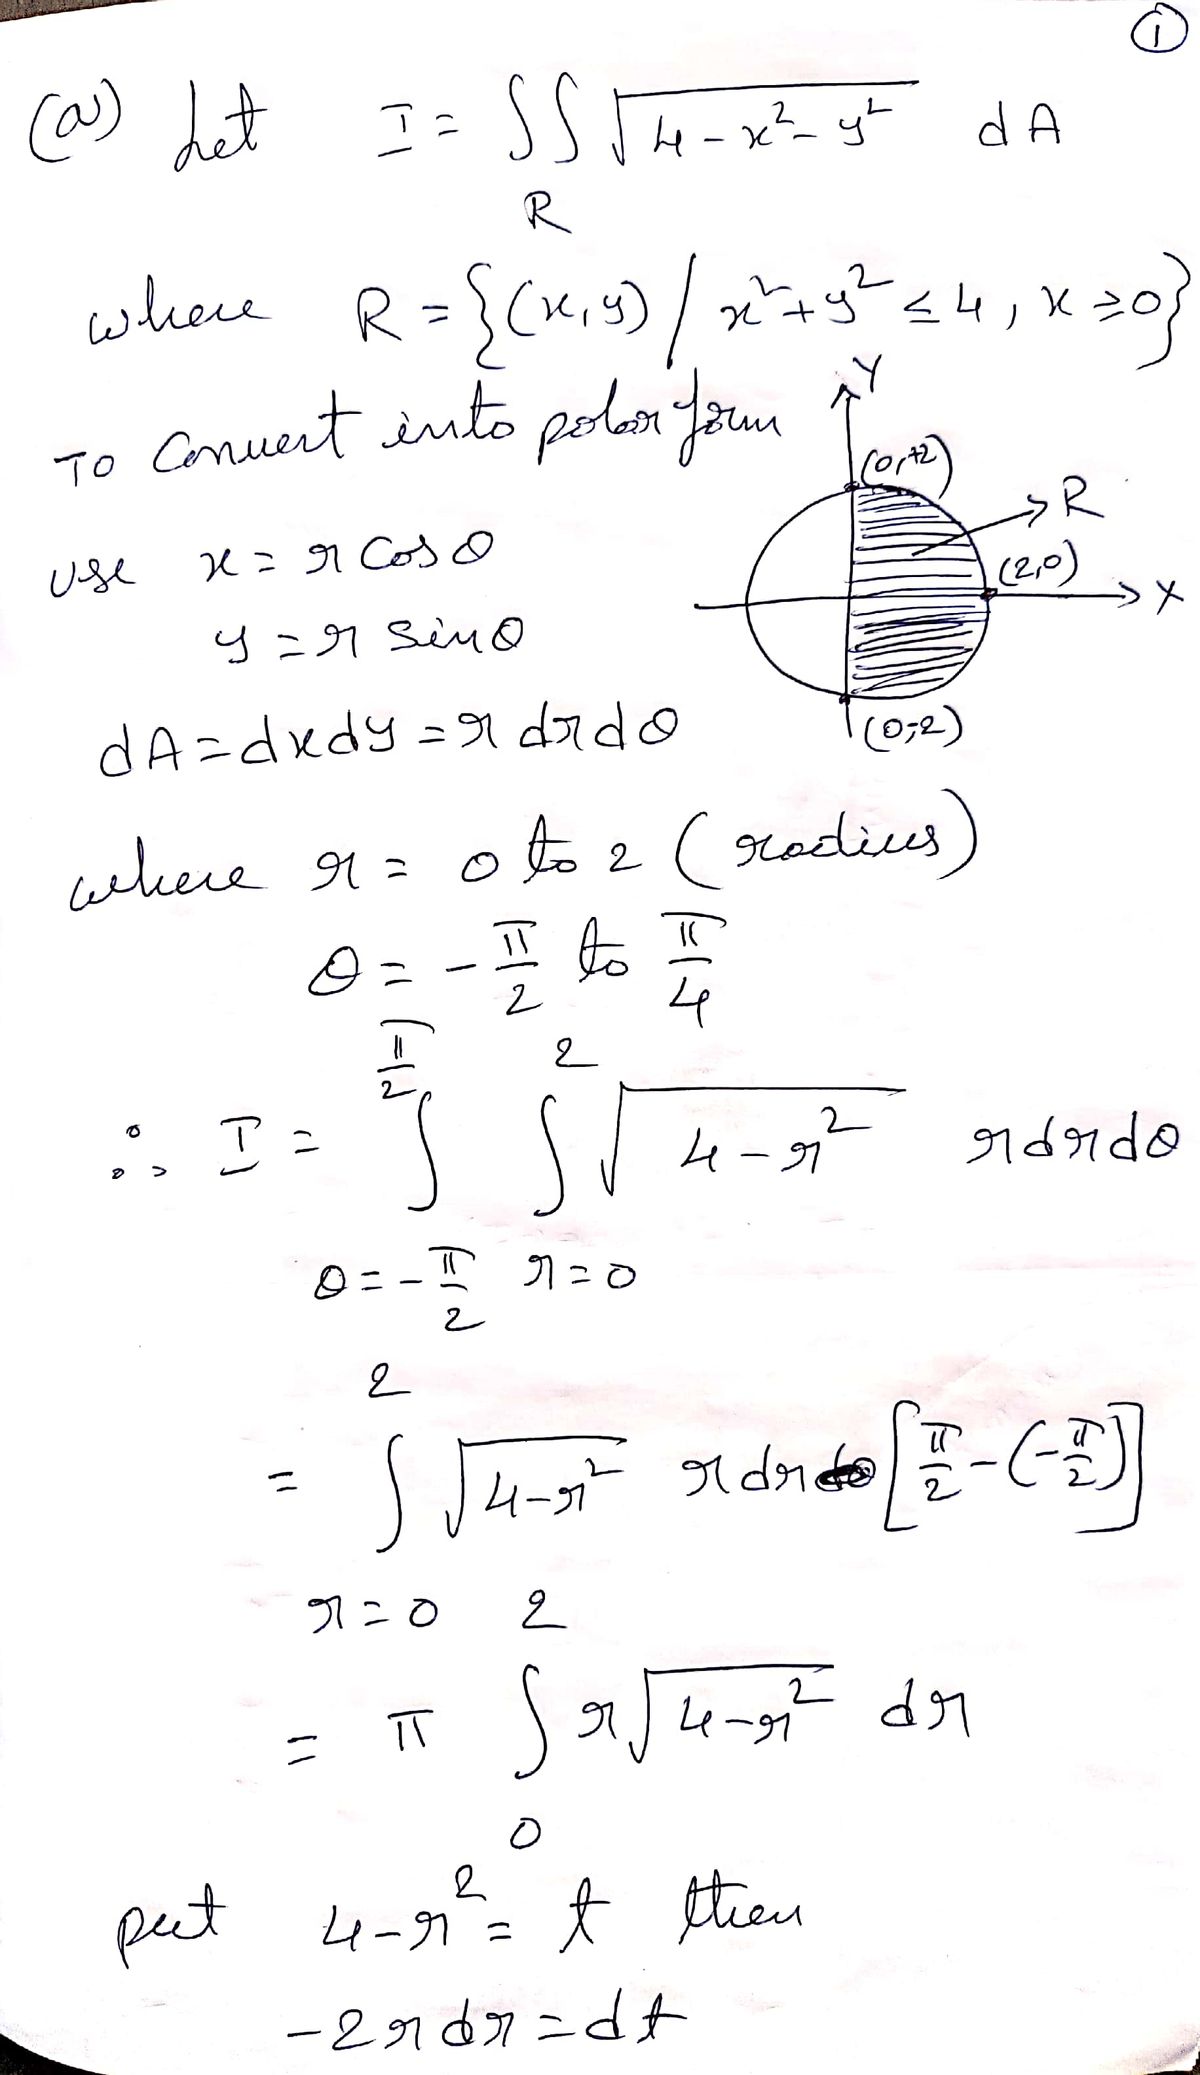 ①
(a) Let I = ∫∫ √(4-x²-y²) dA
R
where R = {(x,y) / x²+y² ≤ 4, x ≥ 0}
Y
To Convert into polar form
(0,+2)
R
use x = r Cos θ
(2,0)
X
y = r Sin θ
dA = dxdy = r dr dθ
(0,-2)
where r = 0 to 2 (radius)
θ = -π/2 to π/4
π/2 2
∴ I = ∫ ∫ √(4-r²) r dr dθ
θ = -π/2 r = 0
2
= ∫ √(4-r²) r dr [π/2 - (-π/2)]
r = 0
2
= π ∫ r √(4-r²) dr
0
put 4-r² = t then
-2r dr = dt